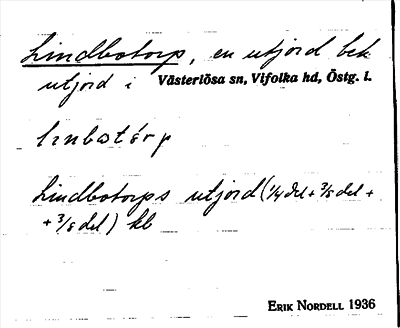 Lindbotorp, en utjord bek
utjord i Västerlösa sn, Vifolka hd, Östg. l.
linbotórp
Lindbotorps utjord (1/4 del + 3/8 del +
+ 3/8 del) kb
ERIK NORDELL 1936